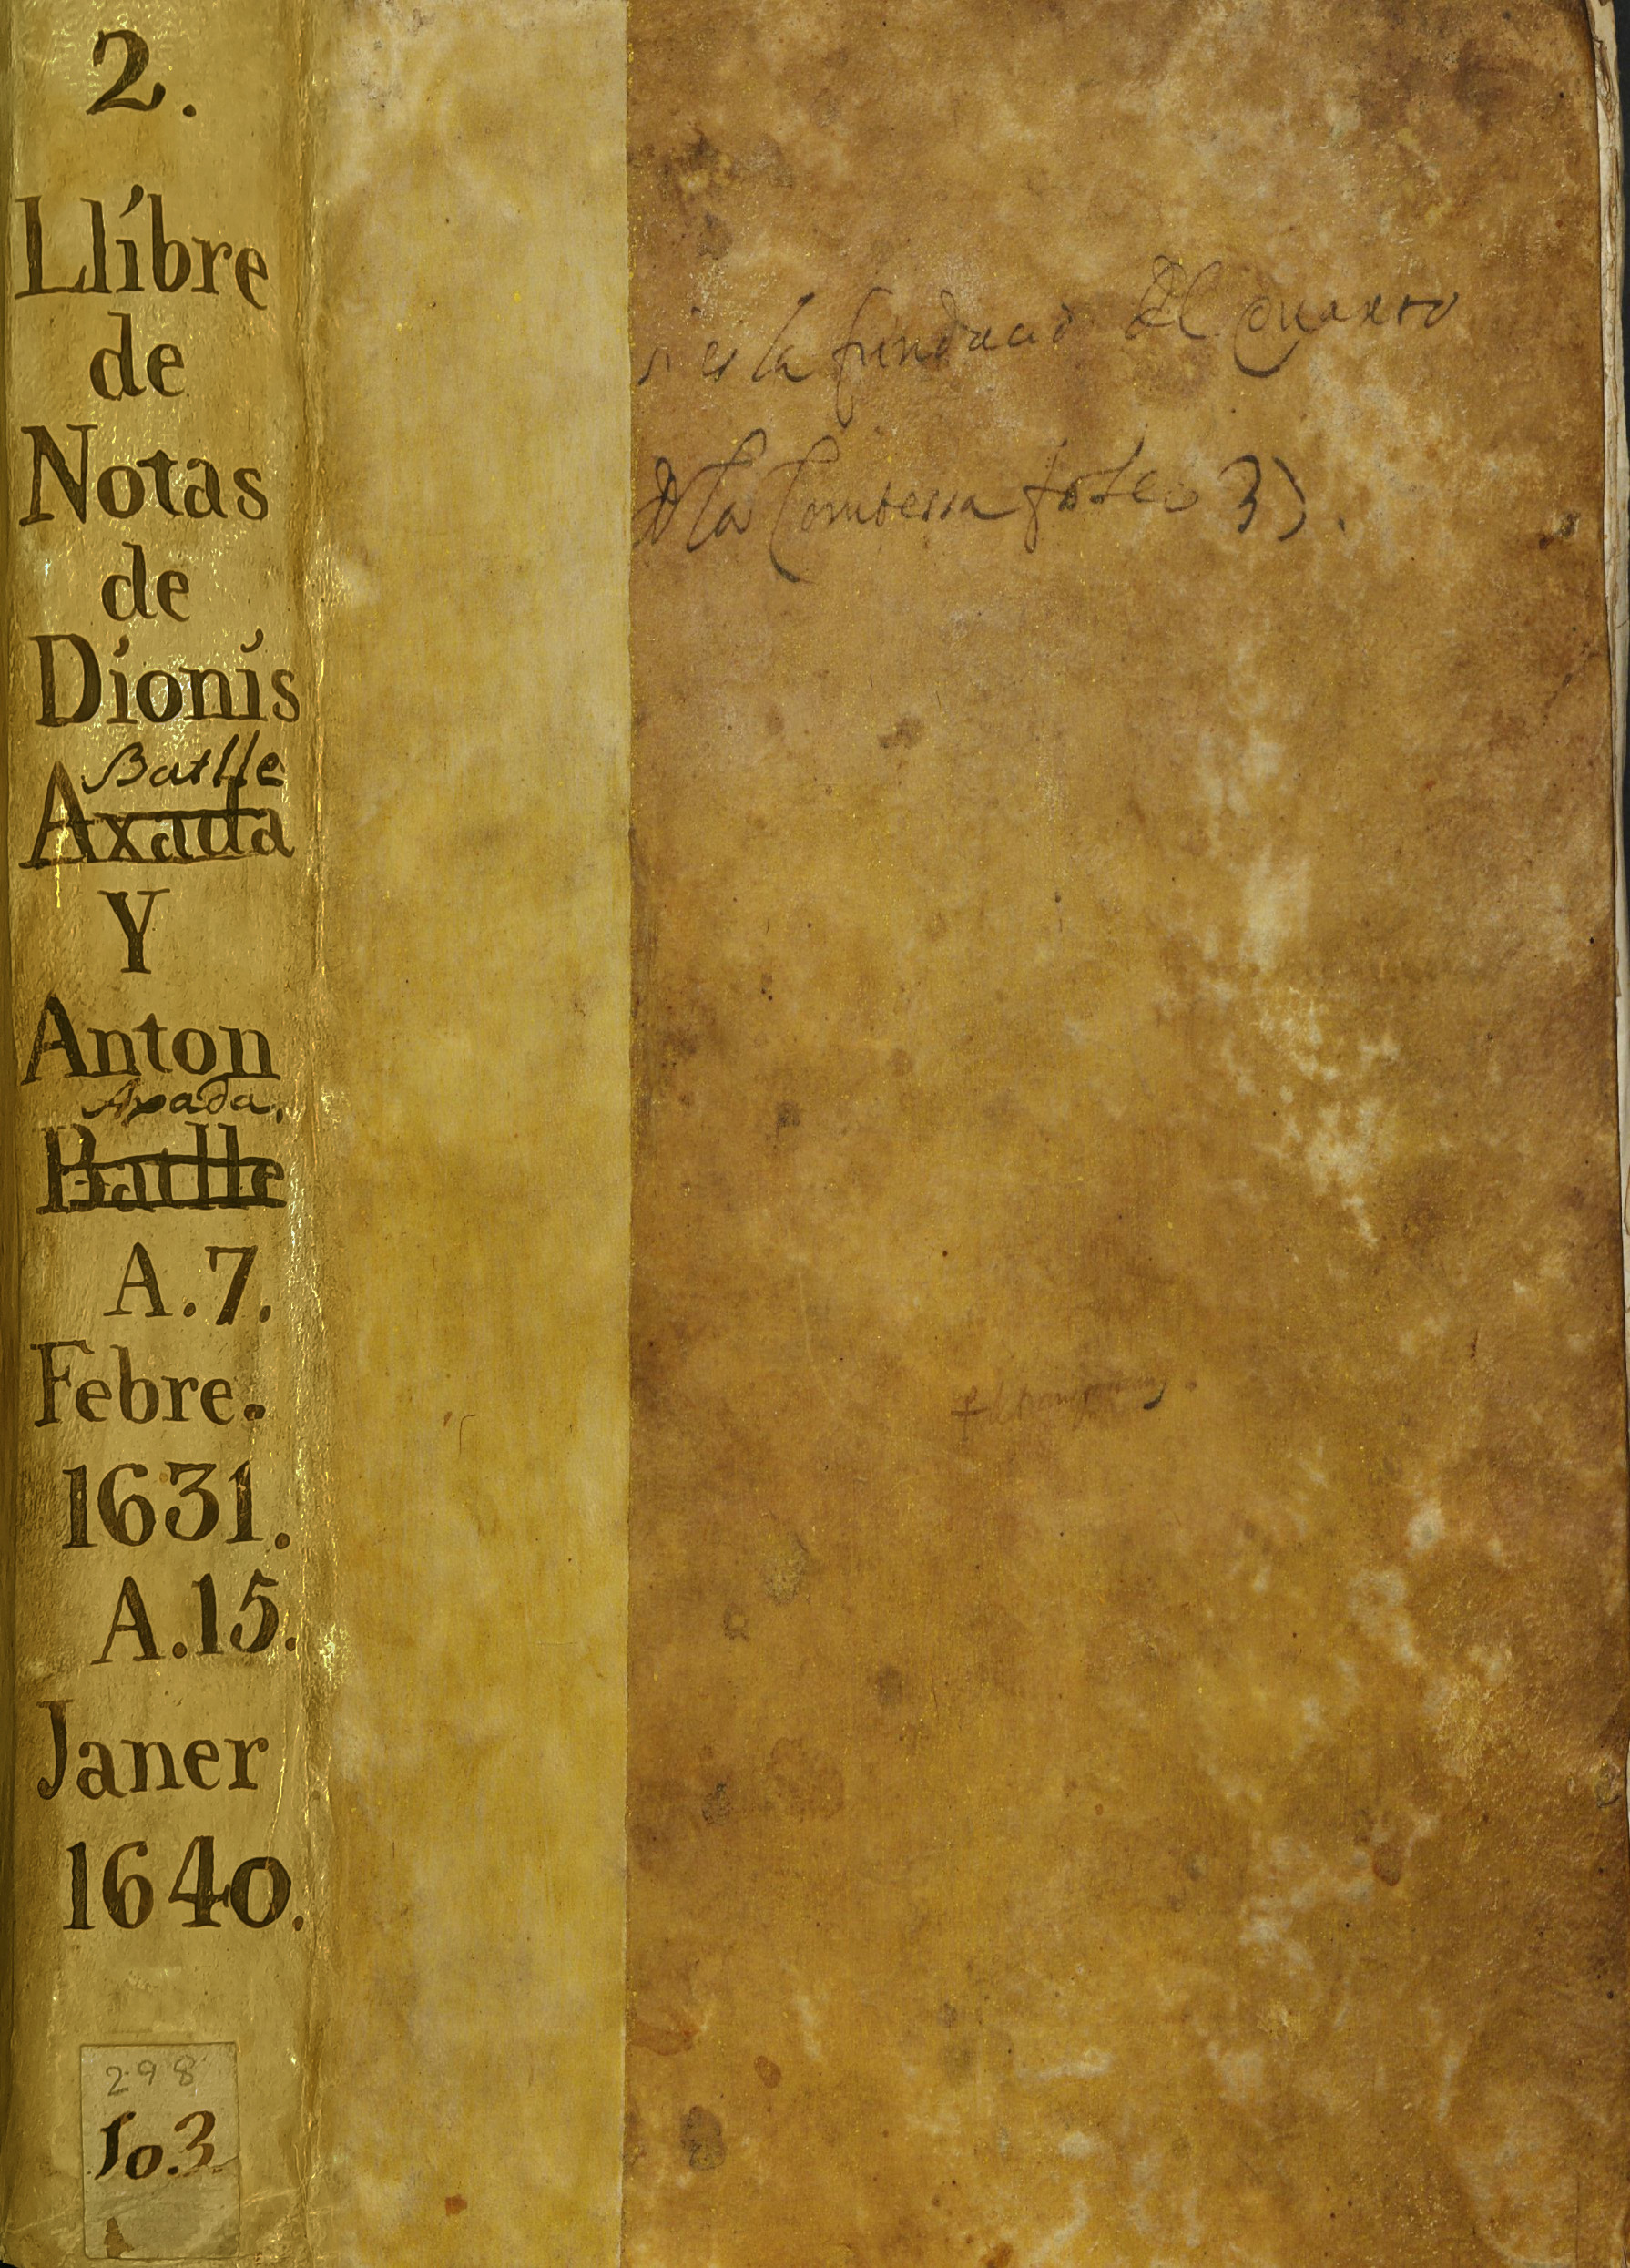 2.
Llibre
de
Notas
de
Dionis
Batlle
Axada
Y
Anton
Axada.
Batlle
A.7.
Febre.
1631.
A.15.
Janer
1640.
298
103
es la fundacio del quarto
de la Comtessa